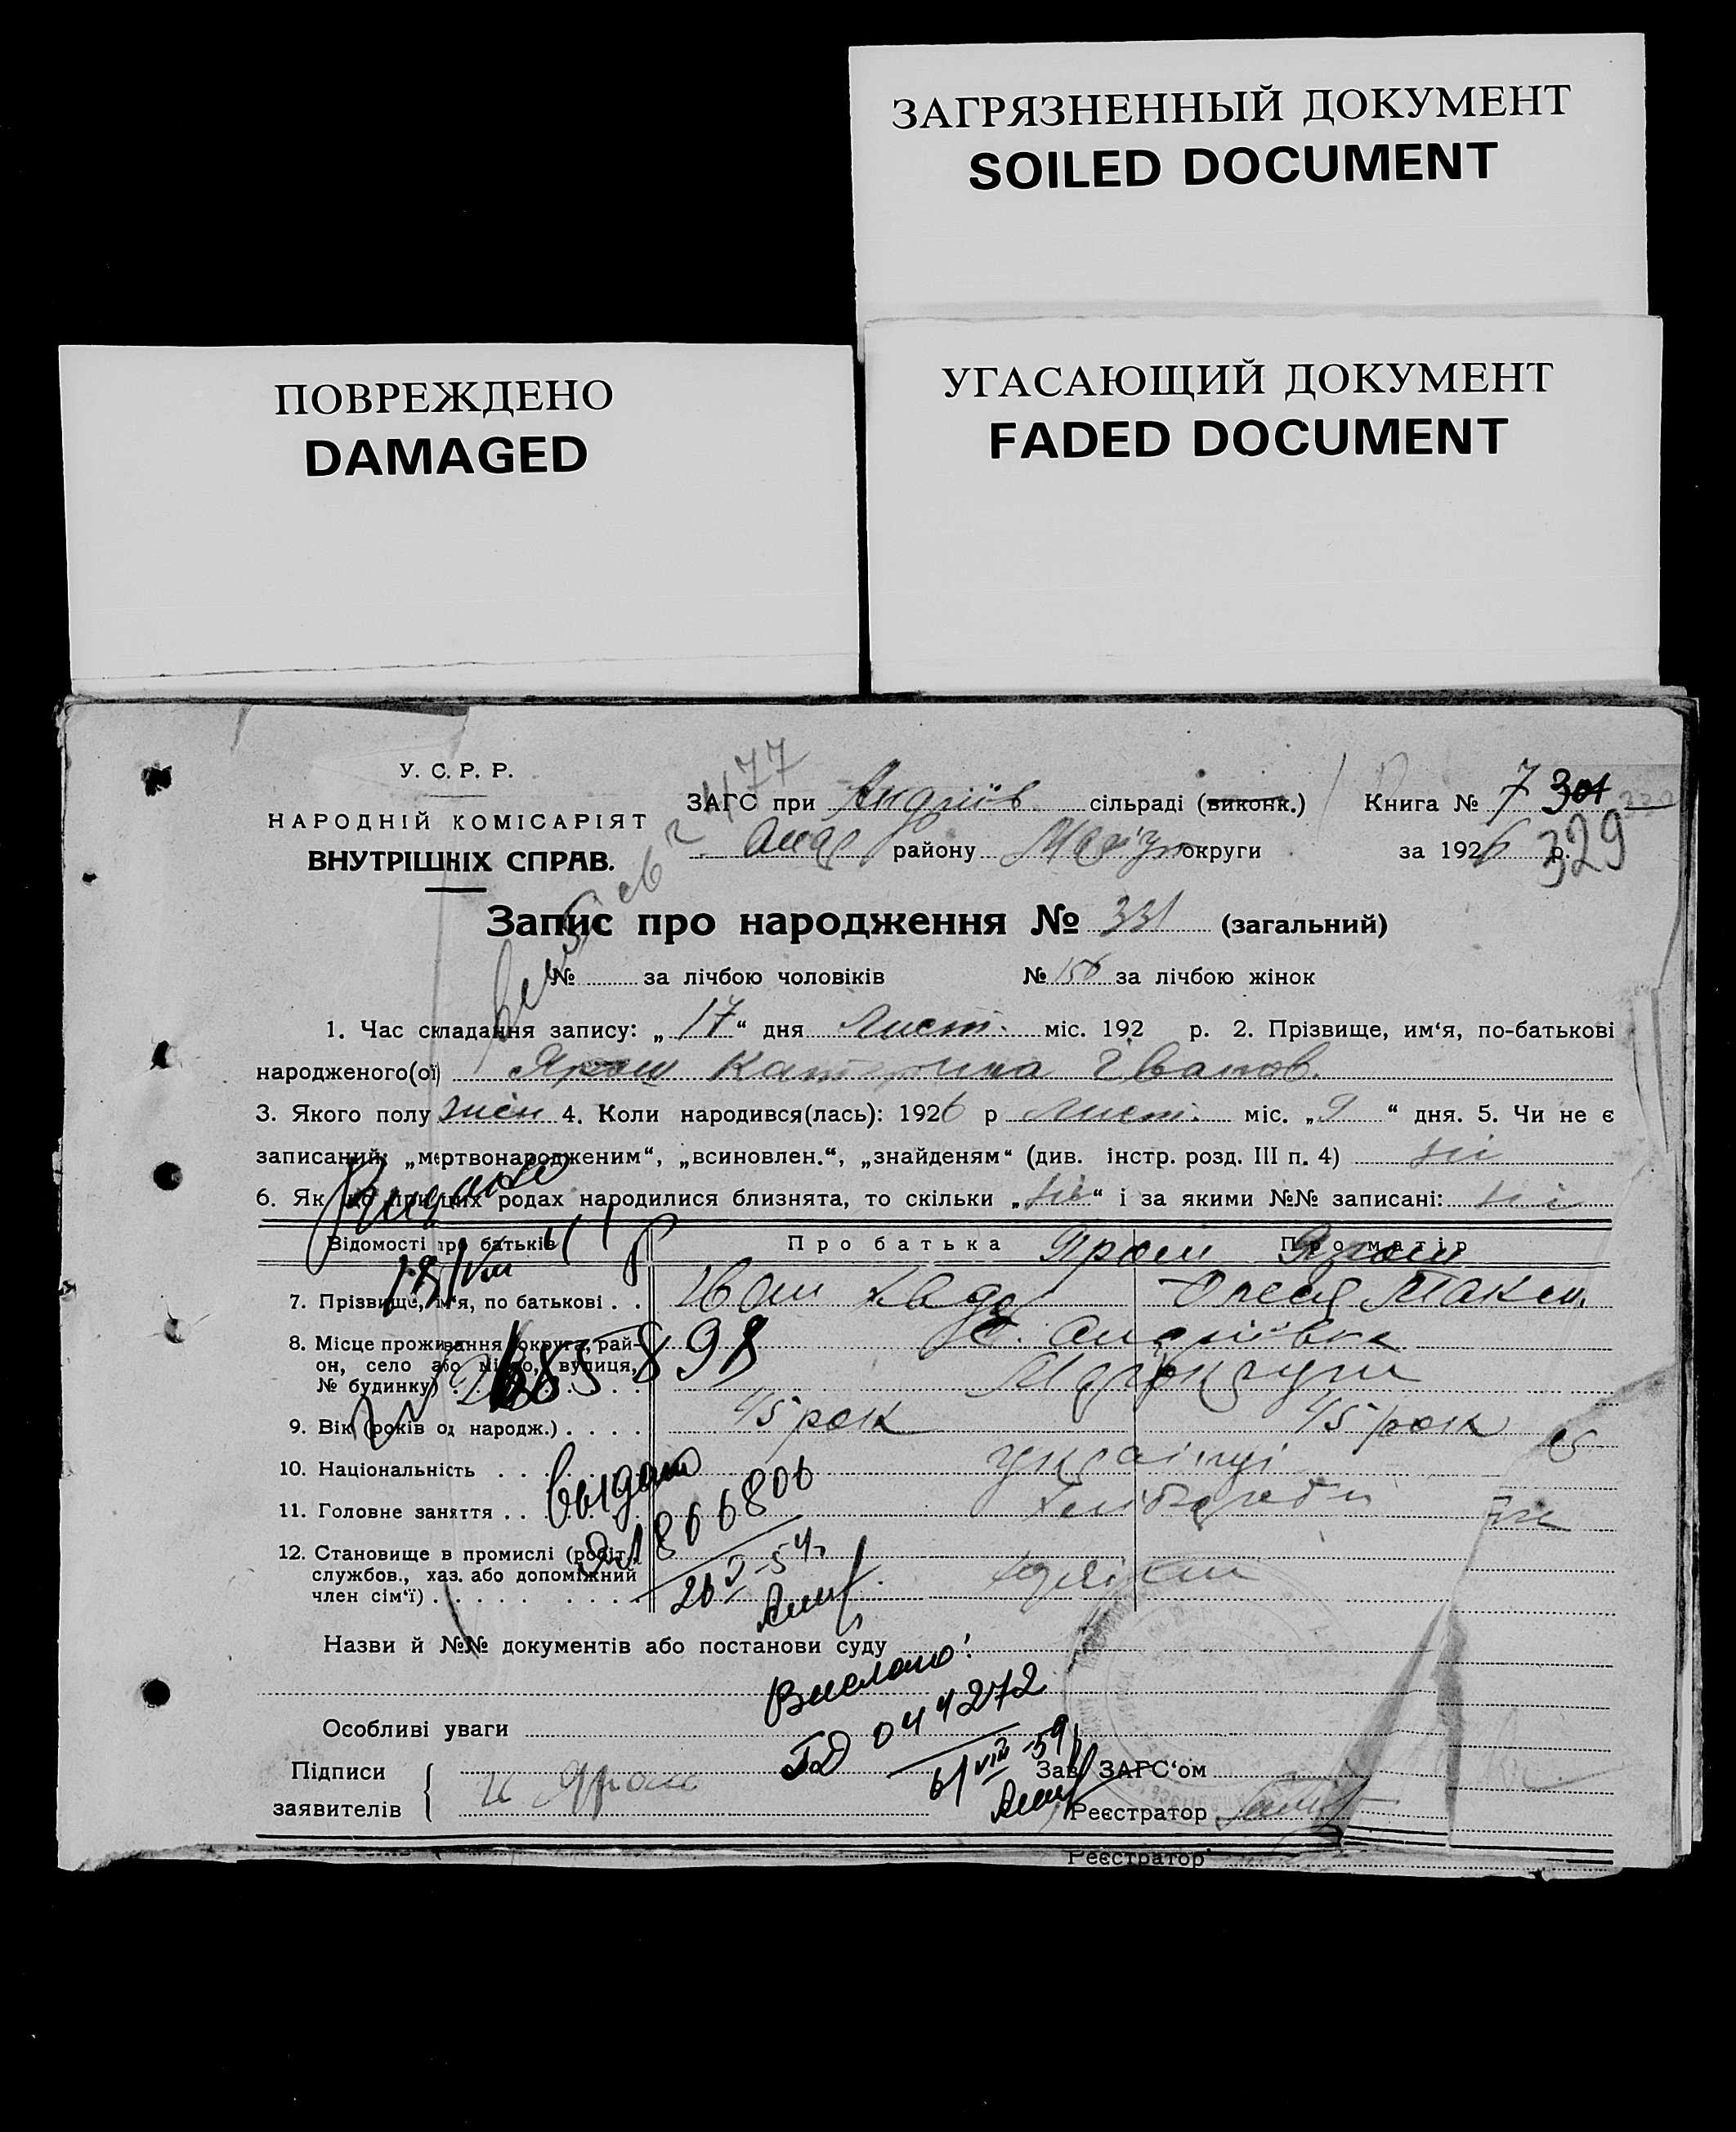 ЗАГРЯЗНЕННЫЙ ДОКУМЕНТ
SOILED DOCUMENT
ПОВРЕЖДЕНО
DAMAGED
УГАСАЮЩИЙ ДОКУМЕНТ
FADED DOCUMENT
У. С. Р. Р.
НАРОДНІЙ КОМІСАРІЯТ
ВНУТРІШНІХ СПРАВ.
477
ЗАГС при Андріїв сільраді (виконк.) Книга № 7 301
Андр району Маріуп округи за 1926 р. 329
Запис про народження № 331 (загальний)
№ за лічбою чоловіків № 156 за лічбою жінок
1. Час складання запису: „17“ дня Лист. міс. 192 р. 2. Прізвище, им‘я, по-батькові
народженого(ої) Ярош Катерина Іванов.
3. Якого полу жін 4. Коли народився(лась): 1926 р Лист. міс. „9“ дня. 5. Чи не є
записаний: „мертвонародженим“, „всиновлен.“, „знайденям“ (див. інстр. розд. III п. 4) ні
6. Як що при цих родах народилися близнята, то скільки „ні“ і за якими №№ записані: ні
Видано
Відомості про батьків Про батька Ярош Про матір Ярош
18/VIII 41 р
7. Прізвище, ім‘я, по батькові . . Іван Олена Макси.
8. Місце проживання (округа, район, село або місто, вулиця, № будинку) с. Андріївка
Маріюпільщини
898
9. Вік (років од народж.) . . . . 45 рок 45 рок
10. Національність . . українці
11. Головне заняття . . Хлібороби
выдано
866806
26 V-54
12. Становище в промислі (робіт.,
службов., хаз. або допоміжний
член сім‘ї) . . . . .
Назви й №№ документів або постанови суду
Вислано!
ГД 044272
6/VIII-59
Особливі уваги
Підписи
заявителів И Ярош
Зав. ЗАГС‘ом
Реєстратор
Реєстратор